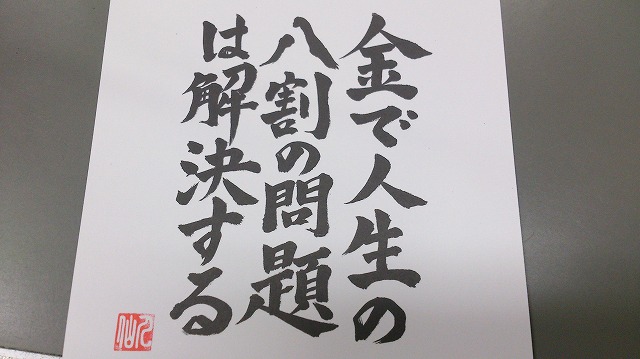 金で人生の
八割の問題
は解決する